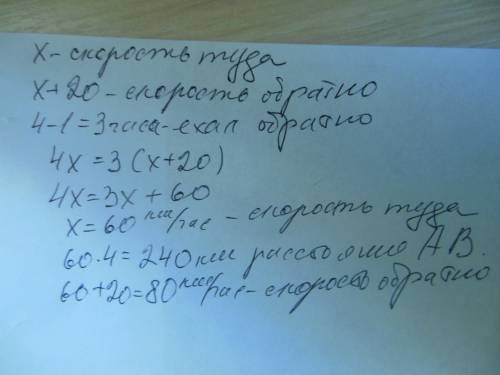 x - скорость туда
x+20 - скорость обратно
4-1=3часа-ехал обратно
4x=3(x+20)
4x=3x+60
x=60км/час - скорость туда
60·4=240км расстояние АВ.
60+20=80км/час-скорость обратно